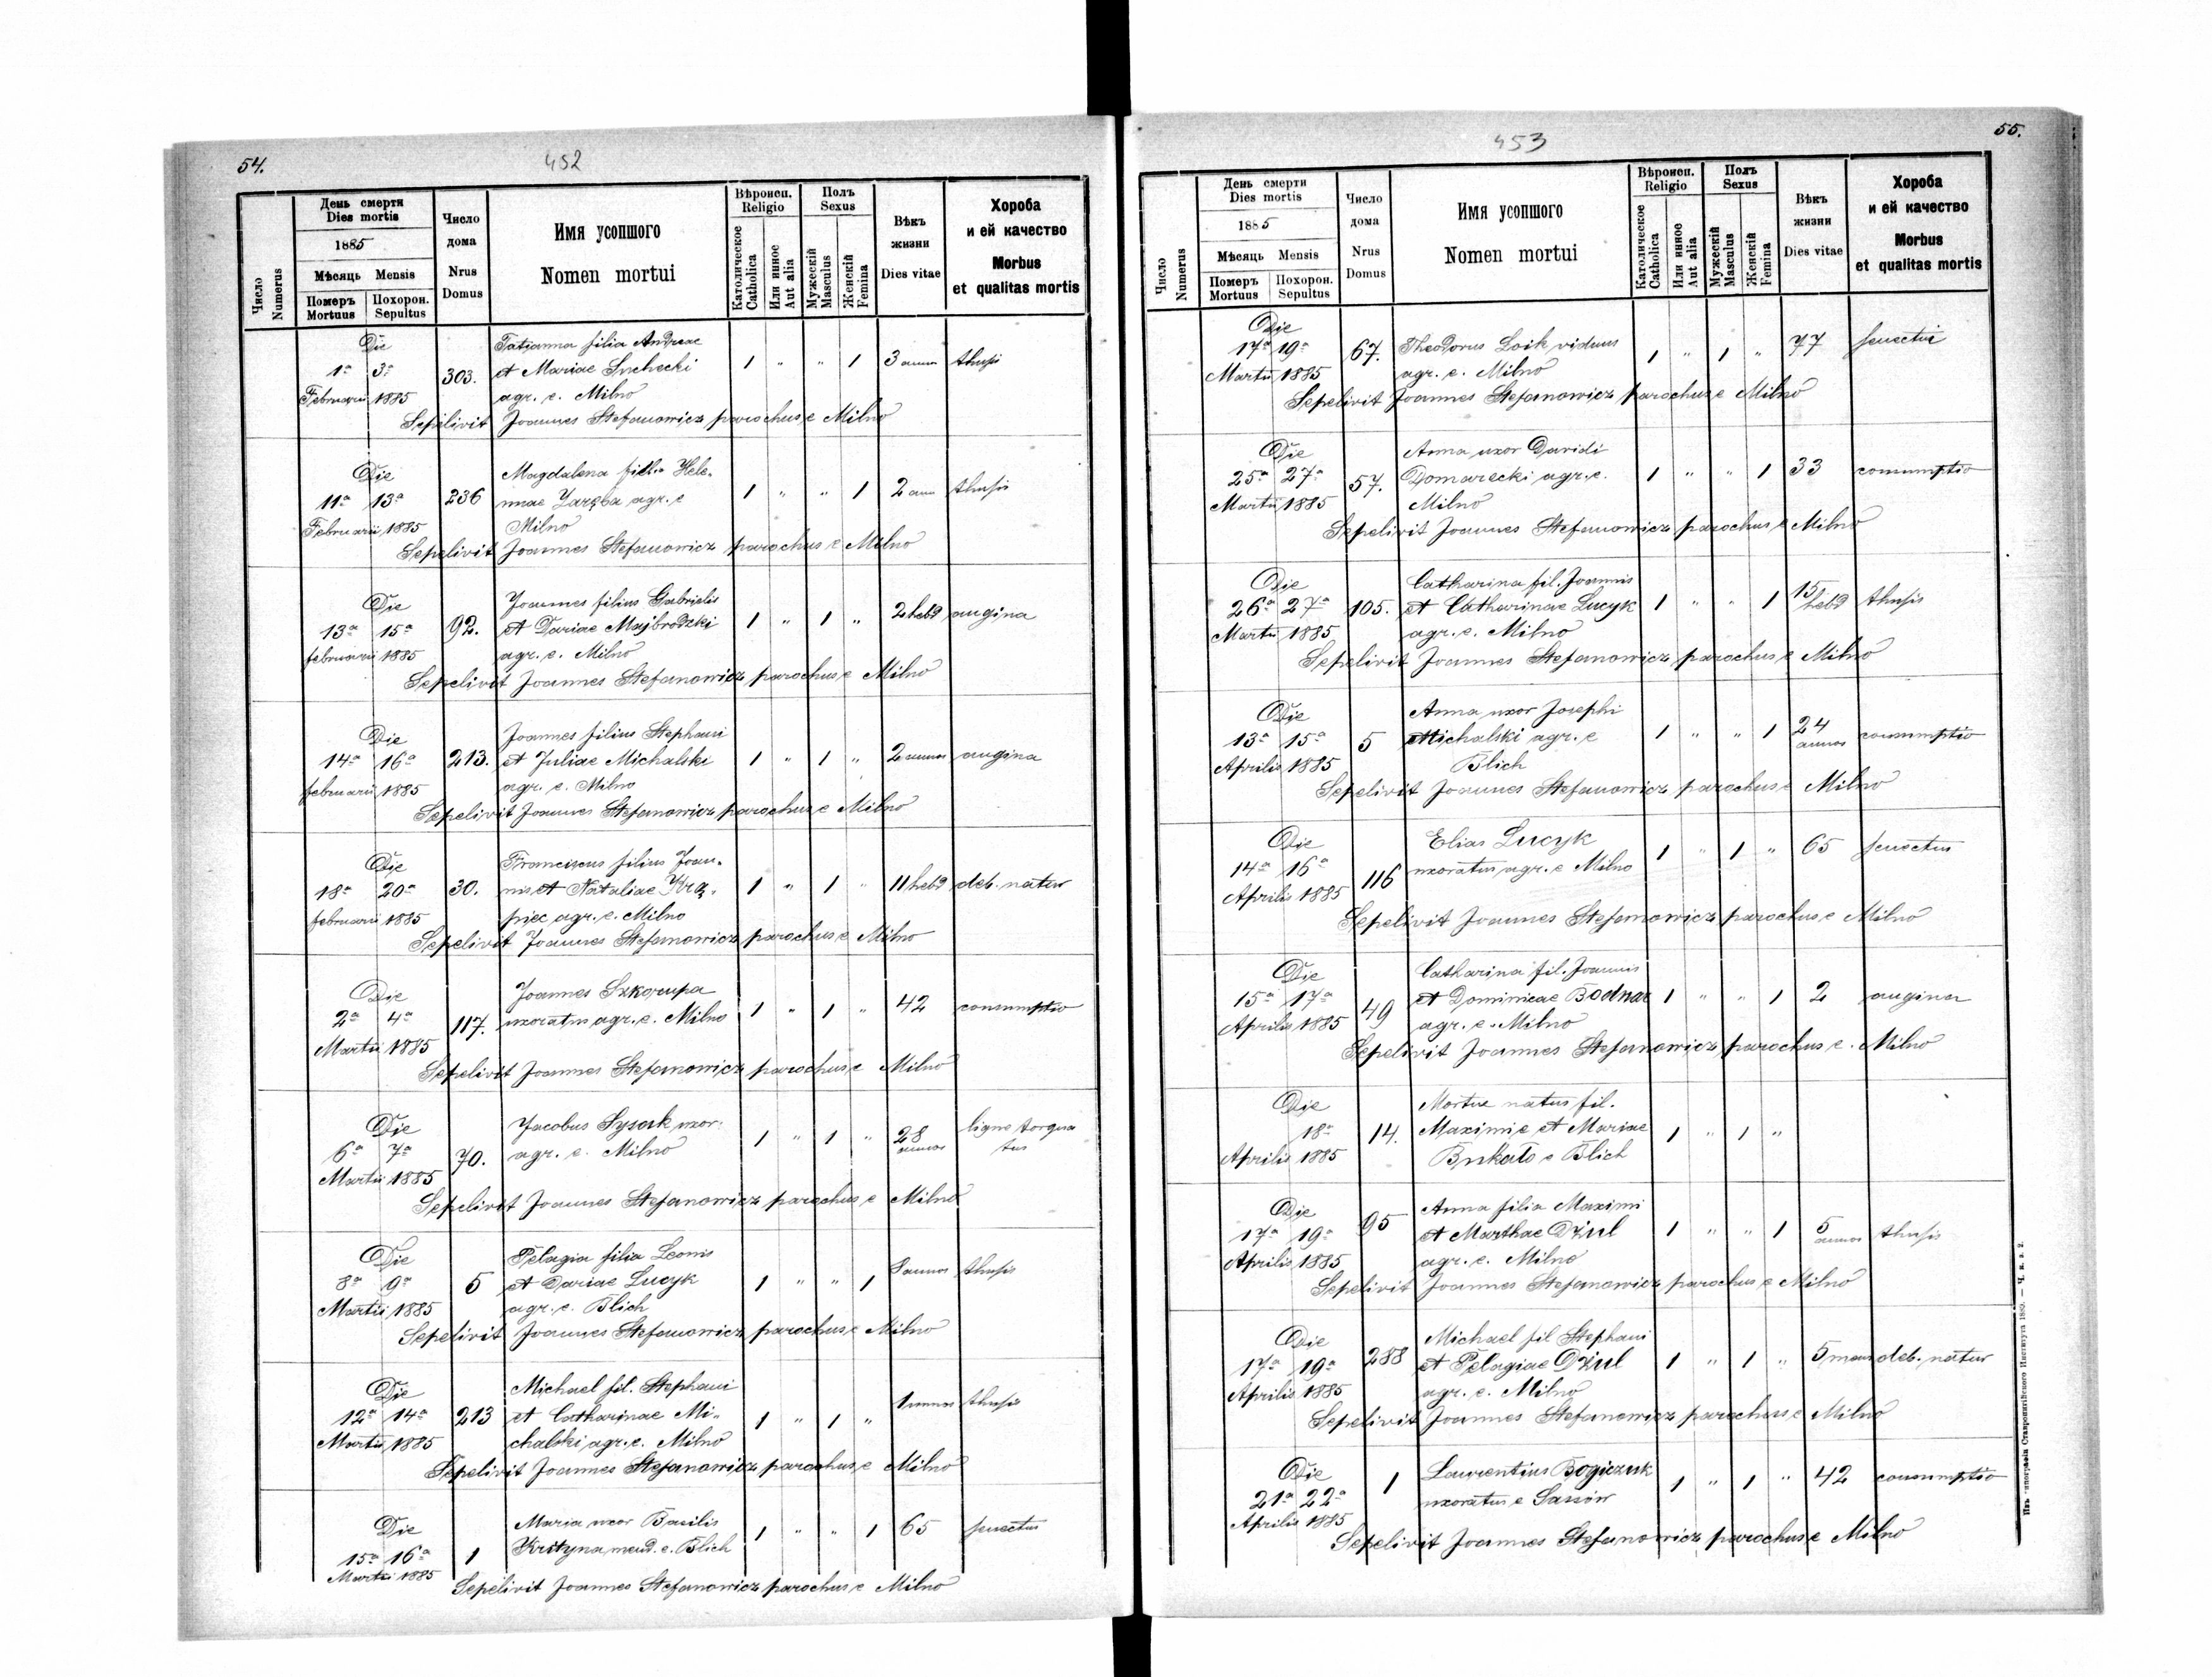 54.
452
Число
Numerus
День смерти
Dies mortis
1885
Мѣсяць Mensis
Померъ
Mortuus
Похорон.
Sepultus
Число
дома
Nrus
Domus
Имя усопшого
Nomen mortui
Вѣроисп.
Religio
Католическое
Catholica
Или инное
Aut alia
Полъ
Sexus
Мужескій
Masculus
Женскій
Femina
Вѣкъ
жизни
Dies vitae
Хороба
и ей качество
Morbus
et qualitas mortis
Die
Tatianna filia Andreae
1a 3a 303. et Mariae Suchecki 1 " " 1 3 annos thusis
Februarii 1885 agr. e. Milno
Sepelivit Joannes Stefanowicz parochus e Milno
Die
Magdalena filia Hele-
11a 13a 236 nnae Zaręba agr. e 1 " " 1 2 ann thusis
Februarii 1885 Milno
Sepelivit Joannes Stefanowicz parochus e Milno
Die
Joannes filius Gabrielis
13a 15a 92. et Dariae Majbrodzki 1 " 1 " 2 hebd angina
februarii 1885 agr. e. Milno
Sepelivit Joannes Stefanowicz parochus e Milno
Die
Joannes filius Stephani
14a 16a 213. et Juliae Michalski 1 " 1 " 2 annos angina
februarii 1885 agr. e. Milno
Sepelivit Joannes Stefanowicz parochus e Milno
Die
Franciscus filius Joan-
18a 20a 30. nis et Nataliae Krą- 1 " 1 " 11 hebd deb. natur
februarii 1885 piec agr. e. Milno
Sepelivit Joannes Stefanowicz parochus e Milno
Die
Joannes Szkorupa
2a 4a 117. uxoratus agr. e. Milno 1 " 1 " 42 consumptio
Martii 1885
Sepelivit Joannes Stefanowicz parochus e Milno
Die
Jacobus Sysak uxor.
6a 7a 70. agr. e. Milno 1 " 1 " 28 annos ligno torqua
tus
Martii 1885
Sepelivit Joannes Stefanowicz parochus e Milno
Die
Pelagia filia Leonis
8a 9a 5 et Dariae Lucyk 1 " " 1 annos thusis
Martii 1885 agr. e. Blich
Sepelivit Joannes Stefanowicz parochus e Milno
Die
Michael fil. Stephani
12a 14a 213 et Catharinae Mi- 1 " 1 " 1 annos thusis
Martii 1885 chalski agr. e. Milno
Sepelivit Joannes Stefanowicz parochus e Milno
Die
Maria uxor Basilis
15a 16a 1 Krityna mend. e. Blich 1 " " 1 65 senectus
Martii 1885
Sepelivit Joannes Stefanowicz parochus e Milno
55.
453
Число
Numerus
День смерти
Dies mortis
1885
Мѣсяць Mensis
Померъ
Mortuus
Похорон.
Sepultus
Число
дома
Nrus
Domus
Имя усопшого
Nomen mortui
Вѣроисп.
Religio
Католическое
Catholica
Или инное
Aut alia
Полъ
Sexus
Мужескій
Masculus
Женскій
Femina
Вѣкъ
жизни
Dies vitae
Хороба
и ей качество
Morbus
et qualitas mortis
Die
17a 19a 67. Theodorus Loik viduus 1 " 1 " 77
Martii 1885 agr. e. Milno
Sepelivit Joannes Stefanowicz parochus e Milno
Die
Anna uxor Davidi
25a 27a 57. Domarecki agr. e. 1 " " 1 33 consumptio
Martii 1885 Milno
Sepelivit Joannes Stefanowicz parochus e Milno
Die
Catharina fil. Joannis
26a 27a 105. et Catharinae Lucyk 1 " " 1 15 hebd thusis
Martii 1885 agr. e. Milno
Sepelivit Joannes Stefanowicz parochus e Milno
Die
Anna uxor Josephi
13a 15a 5 Michalski agr. e 1 " " 1 24 annos consumptio
Aprilis 1885 Blich
Sepelivit Joannes Stefanowicz parochus e Milno
Die
Elias Lucyk
14a 16a 116 uxoratus agr. e Milno 1 " 1 " 65 senectus
Aprilis 1885
Sepelivit Joannes Stefanowicz parochus e Milno
Die
Catharina fil. Joannis
15a 17a 49 et Dominicae Bodnar 1 " " 1 2 angina
Aprilis 1885 agr. e. Milno
Sepelivit Joannes Stefanowicz parochus e. Milno
Die
Mortue natus fil.
18a 14. Maximi e et Mariae 1 " 1 "
Aprilis 1885 Bukało e Blich
Die
Anna filia Maximi
17a 19a 95 et Marthae Dziul 1 " " 1 5 annos thusis
Aprilis 1885 agr. e. Milno
Sepelivit Joannes Stefanowicz parochus e Milno
Die
Michael fil Stephani
17a 19a 288 et Pelagiae Dziul 1 " 1 " 5 mens deb. natur
Aprilis 1885 agr. e. Milno
Sepelivit Joannes Stefanowicz parochus e Milno
Die
Laurentius Bogiczuk
21a 22a 1 uxoratus e Sassów 1 " 1 " 42 consumptio
Aprilis 1885
Sepelivit Joannes Stefanowicz parochus e Milno
Изъ типографіи Ставропигійского Института